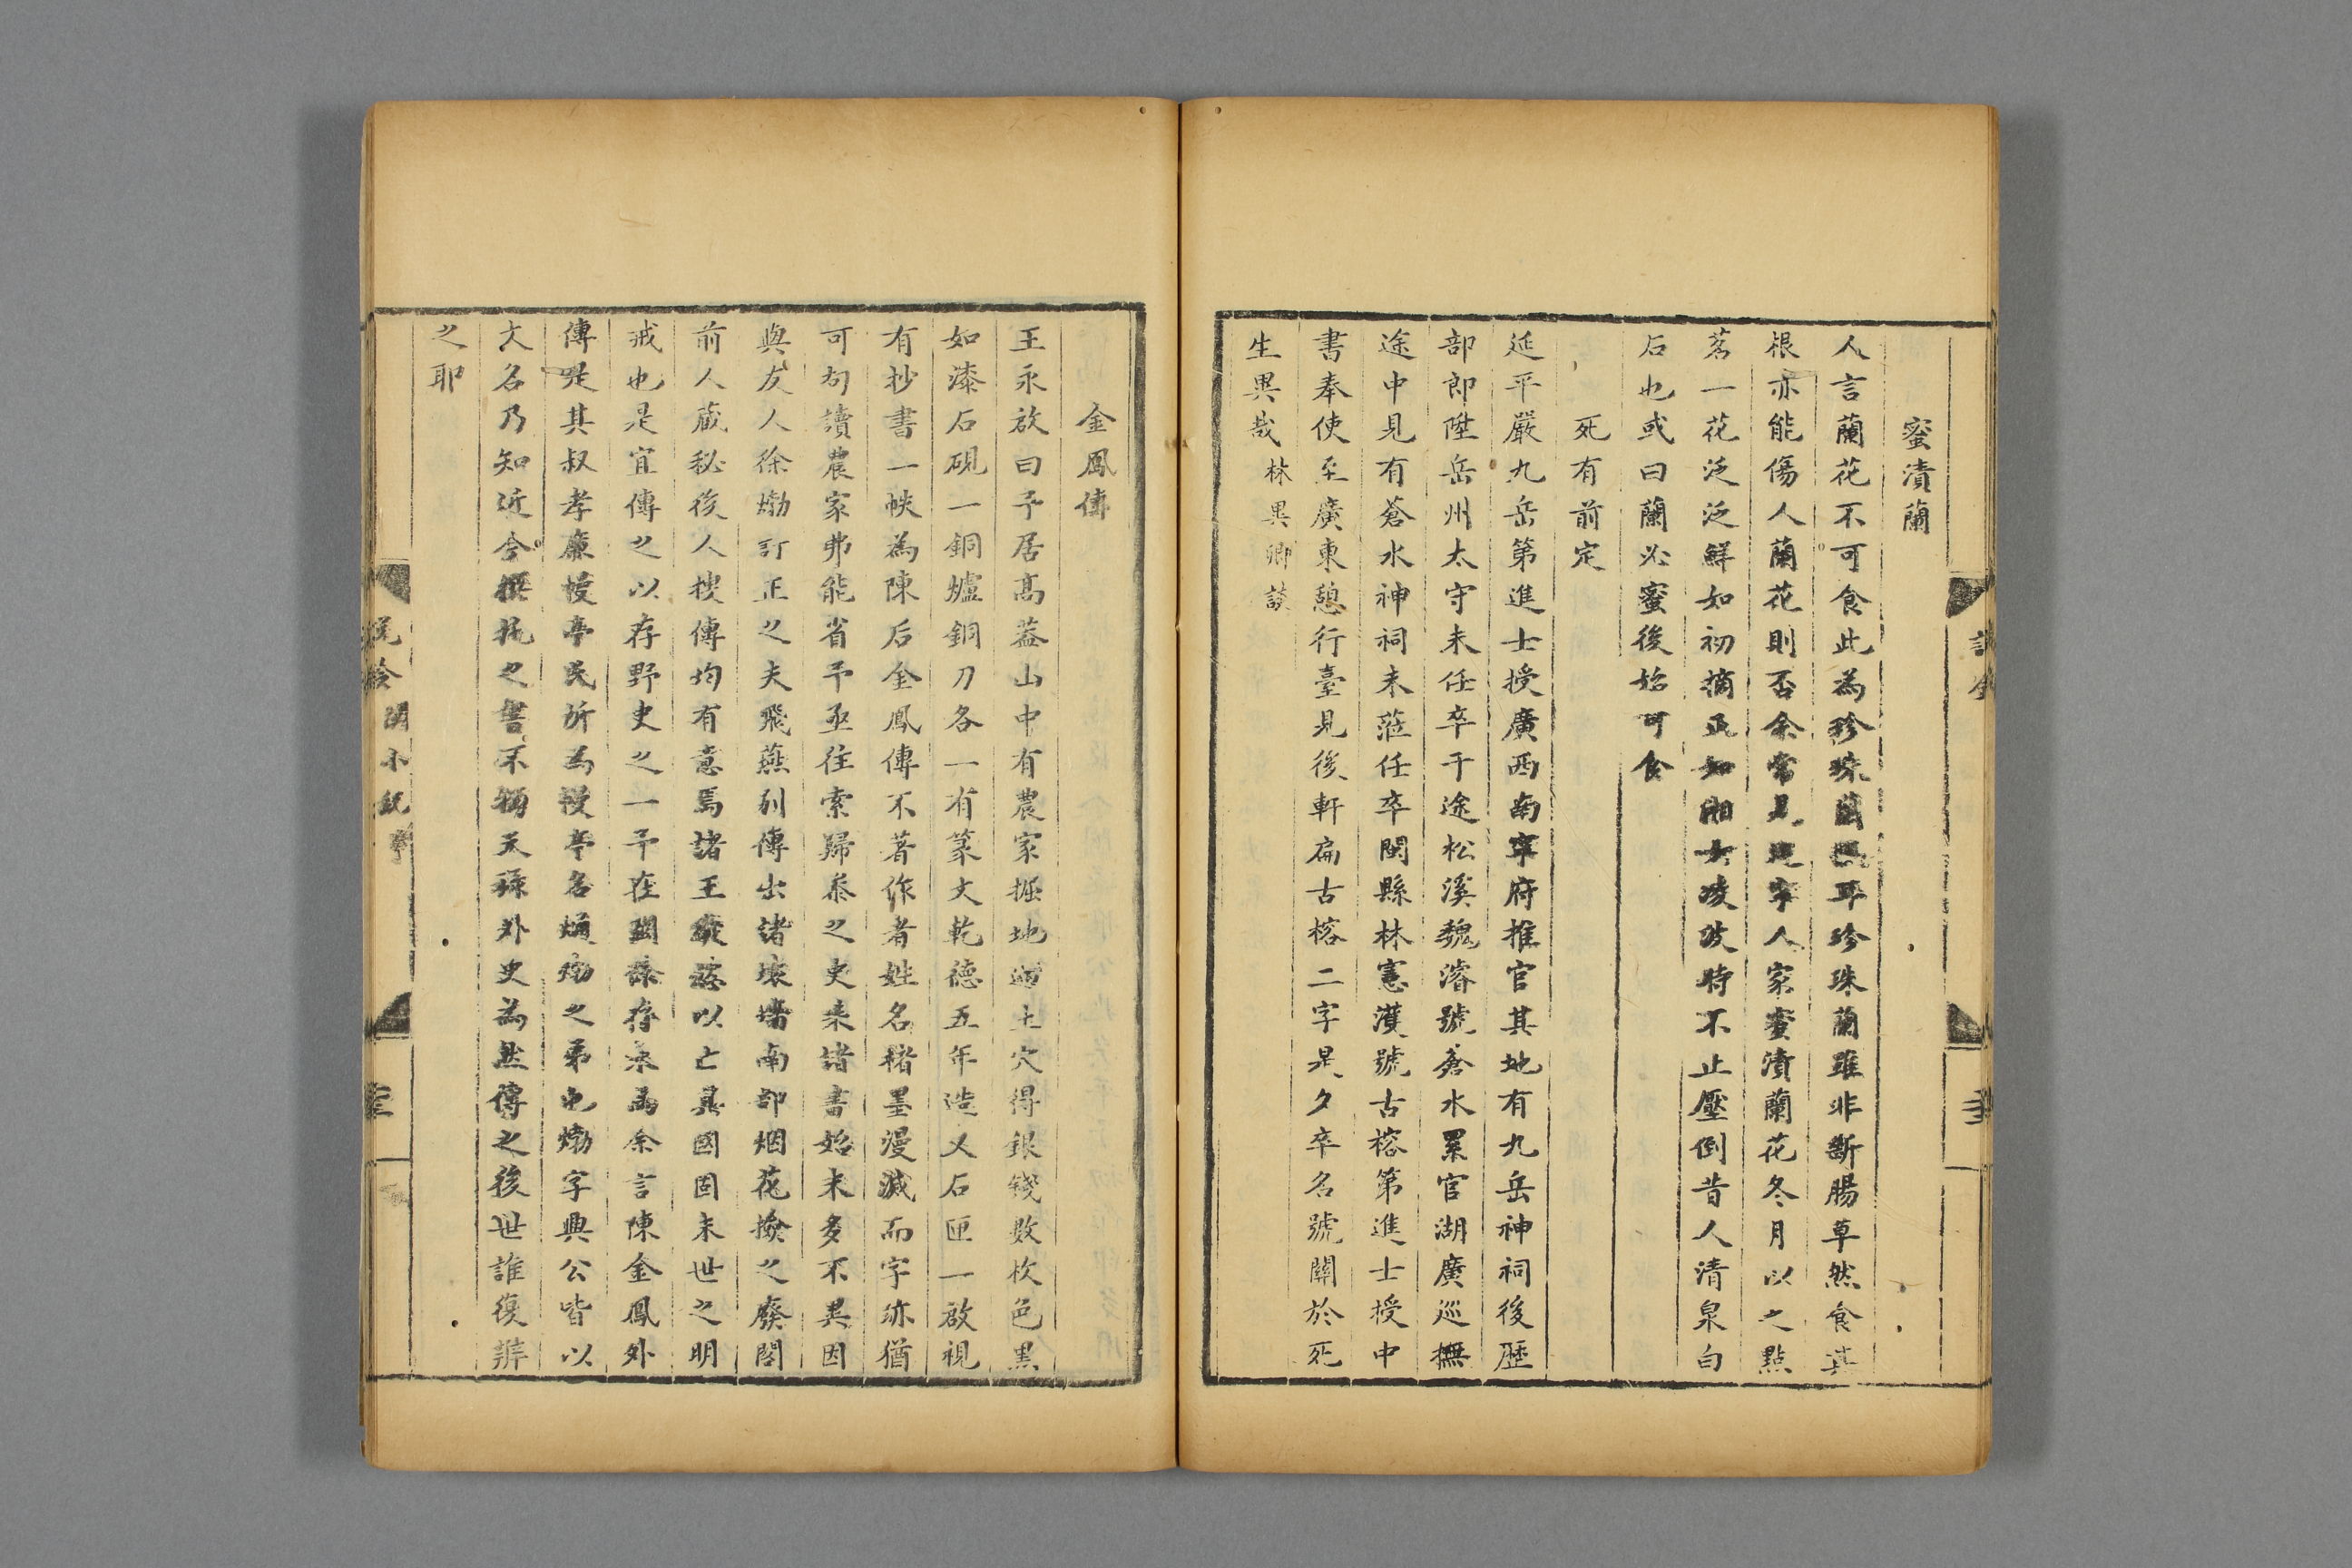 蜜漬蘭
人言蘭花不可食此為珍珠蘭耳珍珠蘭雖非斷腸草然食其
根亦能傷人蘭花則否余常見建寧人家蜜漬蘭花冬月以之點
茗一花泛泛鮮如初摘正如湘女凌波時不止壓倒昔人清泉白
石也或曰蘭必蜜後始可食
死有前定
延平嚴九岳第進士授廣西南寧府推官其地有九岳神祠後歷
部郎陞岳州太守未任卒于途松溪魏濬號蒼水累官湖廣巡撫
途中見有蒼水神祠未蒞任卒閩縣林憲漢號古榕第進士授中
書奉使至廣東憩行臺見後軒扁古榕二字是夕卒名號關於死
生異哉林異卿談
金鳳傳
王永啟曰予居高蓋山中有農家掘地遇土穴得銀錢數枚色黑
如漆石硯一銅爐銅刀各一有篆文乾德五年造又石匣一啟視
有抄書一帙為陳后金鳳傳不著作者姓名楮墨漫滅而字跡猶
可句讀農家弗能省予亟往索歸叅之史乘諸書始末多不異因
與友人徐㶿訂正之夫飛燕別傳出諸壞墻南部烟花撿之廢閣
前人蔵秘後人搜傳均有意焉諸王以亡其國固末世之明
戒也是宜傳之以存野史之一予在余言陳金鳳外
傳是其叔孝廉幔亭民所為幔亭名熥㶿之弟也㶿字興公皆以
文名乃知近今撰托之書不獨天祿外史為然傳之後世誰復辨
之耶
閩小紀